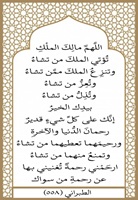 اللّهمّ مالِكَ الملْكِ
تُؤتي الملكَ من تشاءُ
وتنزِعُ الملكَ ممّن تشاءُ
وتُعِزُّ من تشاءُ
وتُذِلُّ من تشاءُ
بيدِك الخيرُ
إنّك على كلِّ شيءٍ قديرٌ
رحمانَ الدّنيا والآخرةِ
ورحيمَهما تعطيهما من تشاءُ
وتمنعُ منهما من تشاءُ
ارحَمْني رحمةً تُغنيني بها
عن رحمةِ من سواك
الطبراني (٥٥٨)